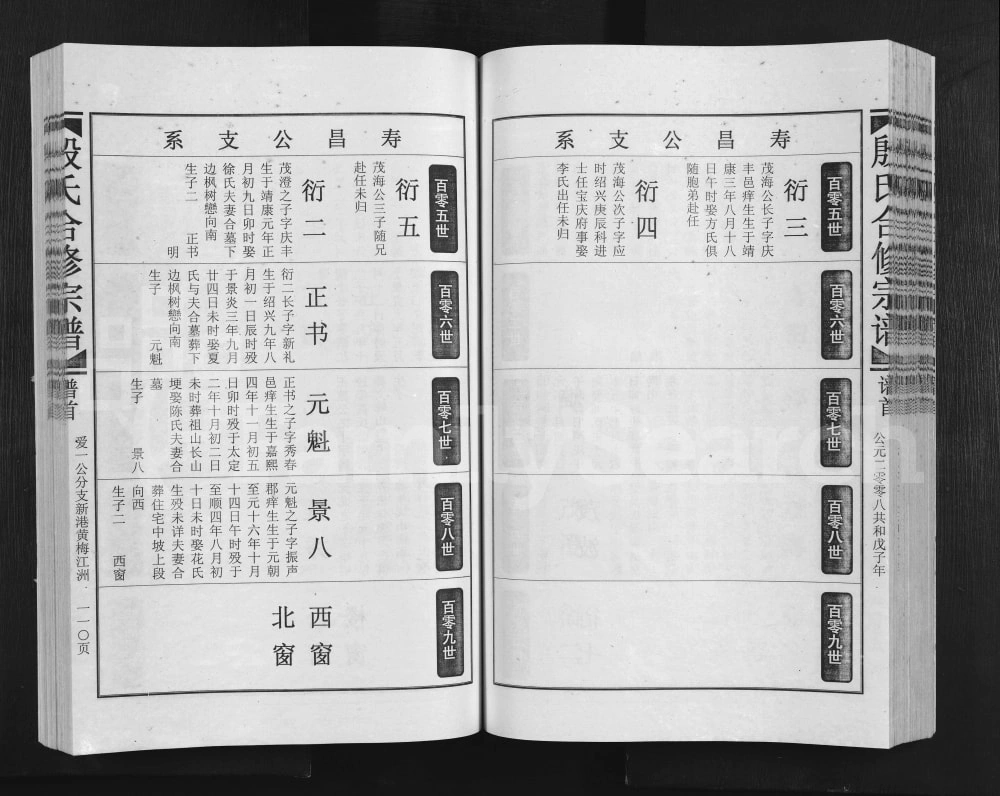 殷氏合修宗谱
谱首
公元二零零八共和戊子年
寿昌公支系
百零五世
衍三
茂海公长子字庆
丰邑庠生生于靖
康三年八月十八
日午时娶方氏俱
随胞弟赴任
衍四
茂海公次子字应
时绍兴庚辰科进
士任宝庆府事娶
李氏出任未归
百零六世
百零七世
百零八世
百零九世
寿昌公支系
百零五世
衍五
茂海公三子随兄
赴任未归
衍二
茂澄之子字庆丰
生于靖康元年正
月初九日卯时娶
徐氏夫妻合墓下
边枫树戀向南
生子二 正书
明
百零六世
正书
衍二长子字新礼
生于绍兴九年八
月初一日辰时殁
于景炎三年九月
廿四日未时娶夏
氏与夫合墓葬下
边枫树戀向南
生子 元魁
百零七世
元魁
正书之子字秀春
邑庠生生于嘉熙
四年十一月初五
日卯时殁于太定
二年十月初二日
未时葬祖山长山
埂娶陈氏夫妻合
墓
生子 景八
百零八世
景八
元魁之子字振声
郡庠生生于元朝
至元十六年十月
十四日午时殁于
至顺四年八月初
十日未时娶花氏
生殁未详夫妻合
葬住宅中坡上段
向西
生子二 西窗
百零九世
西窗
北窗
殷氏合修宗谱
谱首
爱一公分支新港黄梅江洲
一一〇页